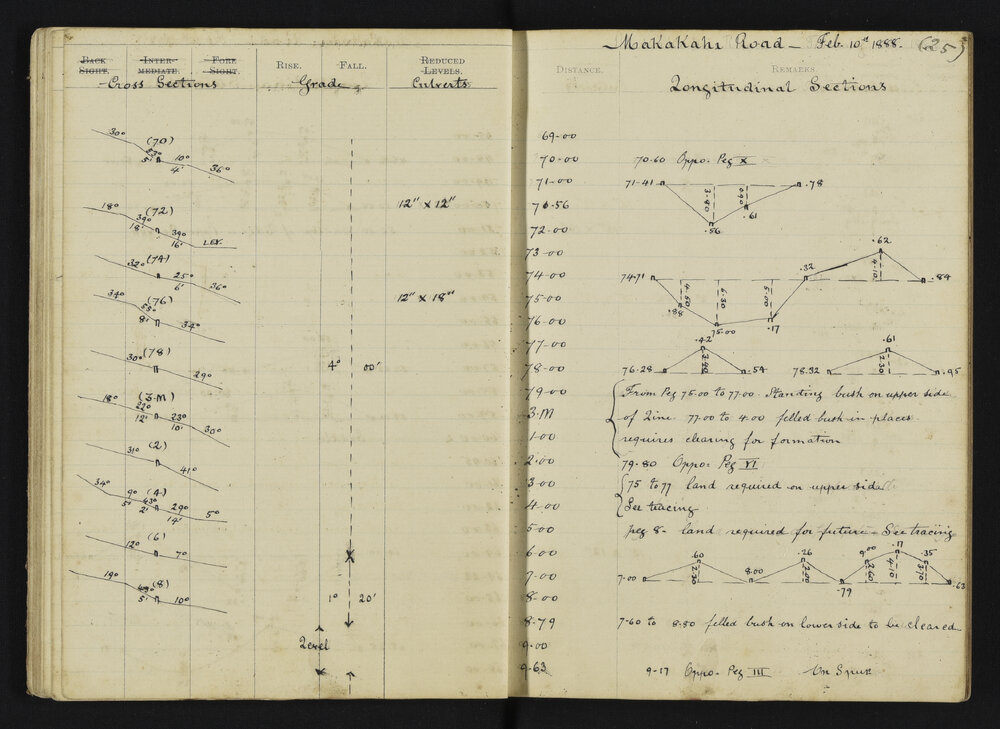 Makakahi Road - Feb. 10th 1888. (25)
BACK SIGHT. INTER-MEDIATE. FORE SIGHT. RISE. FALL. REDUCED LEVELS.
Cross Sections Grade Culverts
30° (70)
53° 10°
5' 4' 36°
18° (72)
39° 39°
18' 16' LEV.
12" x 12"
32° (74)
25°
6' 36°
34° (76)
55°
8' 34°
12" x 18"
30° (78)
29°
4° 00'
18° (3.M)
22° 23°
12' 10' 30°
31° (2)
41°
34° 9° (4)
43° 29°
5' 2' 14' 5°
12° (6)
7°
19° (8)
5' 10°
1° 20'
Level
DISTANCE. REMARKS.
Longitudinal Sections
69.00
70.00 70.60 Oppo. Peg X
71.00 71.41 3.80 0.90 .78
71.56 .56 .61
72.00
73.00 .62
74.00 74.71 .32 4.10 .84
75.00 4.50 6.30 5.00
76.00 .88 75.00 .17
77.00 .42 .61
78.00 76.28 3.40 .54 78.32 2.30 .95
79.00 From Peg 75.00 to 77.00 Standing bush on upper side
3.M of Line 77.00 to 4.00 felled bush in places
1.00 requires clearing for formation
2.00 79.80 Oppo. Peg VI
3.00 75 to 77 land required on upper side
4.00 See tracing
5.00 peg 8 - land required for future - See tracing
6.00 .60 .26 9.00 .17 .35
7.00 7.00 2.20 8.00 2.00 .79 2.60 4.10 3.70 .63
8.00
8.79 7.60 to 8.50 felled bush on lower side to be cleared
9.00
9.63 9.17 Oppo. Peg III On Spur